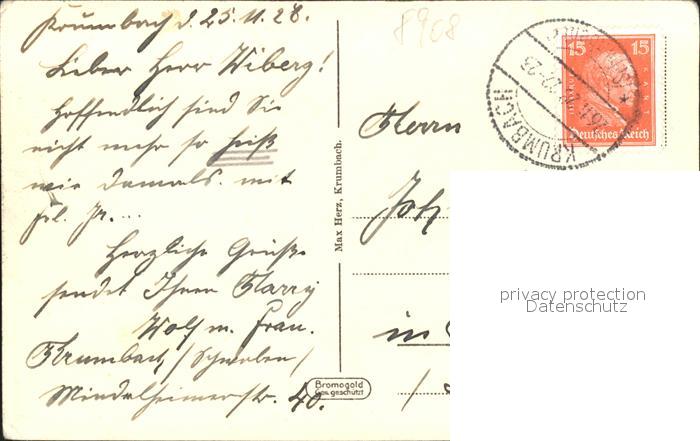 Krumbach d. 25.11.28.
Lieber Herr Wiberg!
Hoffendlich sind Sie
nicht mehr so heiß
wie damals. mit
frl. Fr....
Herzliche Grüße
sendet Ihnen Harry
Wolf m. Frau.
Krumbach / Schwaben /
Mindelheimerstr. 40.
Max Herz, Krumbach.
Bromogold
Ges. geschützt
8908
Herrn
Joh
in
15 15
KANT
Deutsches Reich
KRUMBACH
privacy protection
Datenschutz